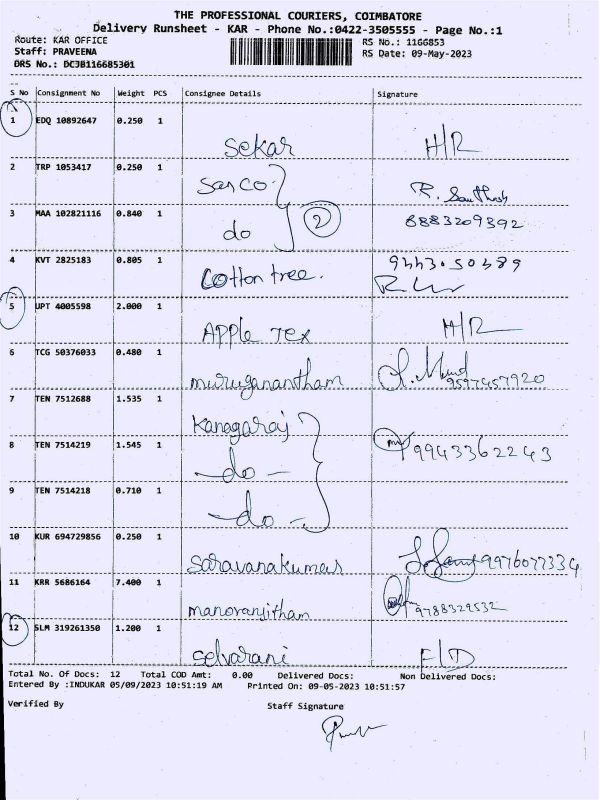 THE PROFESSIONAL COURIERS, COIMBATORE
Delivery Runsheet - KAR - Phone No.:0422-3505555 - Page No.:1
Route: KAR OFFICE RS No.: 1166853
Staff: PRAVEENA RS Date: 09-May-2023
DRS No.: DCJB116685301
S No Consignment No Weight PCS Consignee Details Signature
1 EDQ 10892647 0.250 1
Sekar H/R
2 TRP 1053417 0.250 1
Sanco R. Santhosh
3 MAA 102821116 0.840 1 2 8883209392
do
4 KVT 2825183 0.805 1 9443050389
Cotton tree.
5 UPT 4005598 2.000 1
Apple Tex H/R
6 TCG 50376033 0.480 1
muruganantham 9597457920
7 TEN 7512688 1.535 1
Kanagaraj
8 TEN 7514219 1.545 1 9943362243
-do-
9 TEN 7514218 0.710 1
-do-
10 KUR 694729856 0.250 1
Saravanakumar 9976077334
11 KRR 5686164 7.400 1
manoranjitham 9788329532
12 SLM 319261350 1.200 1
Selvarani F/D
Total No. Of Docs: 12 Total COD Amt: 0.00 Delivered Docs: Non Delivered Docs:
Entered By :INDUKAR 05/09/2023 10:51:19 AM Printed On: 09-05-2023 10:51:57
Verified By Staff Signature